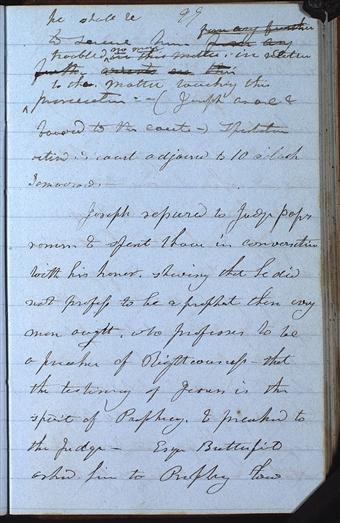 he shall be 99
from any further
to secure him such any
troubles no more in this matter. in relation
to the matter touching this
prosecution. - (Joseph arose &
bowed to the court -) Spectators
retired. court adjourned to 10 oclock
Tomorrow. -
Joseph repaired to Judge Popes
room & spent 1 hour in conversation
with his honor. shewing that he did
not profess to be a prophet then every
man ought. who professes to be
a preacher of Righteousness - that
the testimony of Jesus is the
spirit of Prophecy. & preached to
the Judge - Esqr Butterfield
asked him to Prophecy how